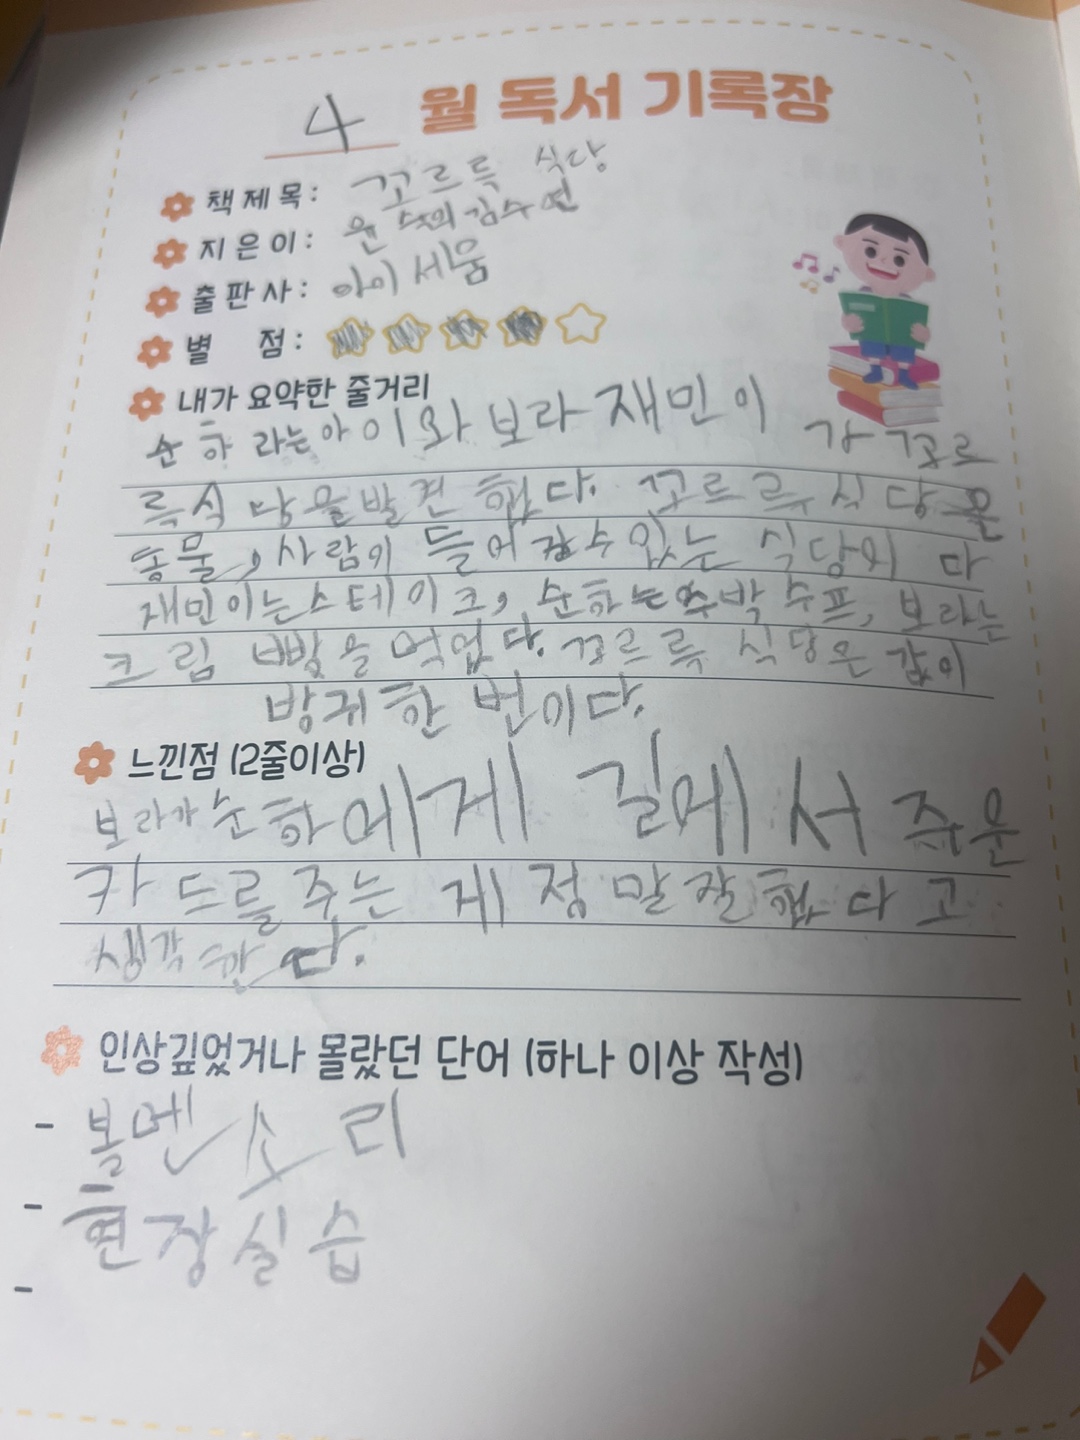 4 월 독서 기록장
책제목: 꼬르륵 식당
지은이: 윤 숙희 김수연
출판사: 아이세움
별 점:
내가 요약한 줄거리
순하 라는아이와 보라 재민이 가 꼬르
륵식당을발견 했다. 꼬르르륵 식당은
동물, 사람이 들어 갈수 있는 식당이 다
재민이는스테이크, 순하는 수박 수프, 보라는
크림 빵을 먹었다. 꼬르륵 식당은 값이
방귀 한 번이다.
느낀점 (2줄이상)
보라가 순하에게 길에서 주운
카드를 주는 게 정말잘했다고
생각 한다.
인상깊었거나 몰랐던 단어 (하나 이상 작성)
- 볼멘소리
- 현장실습
-